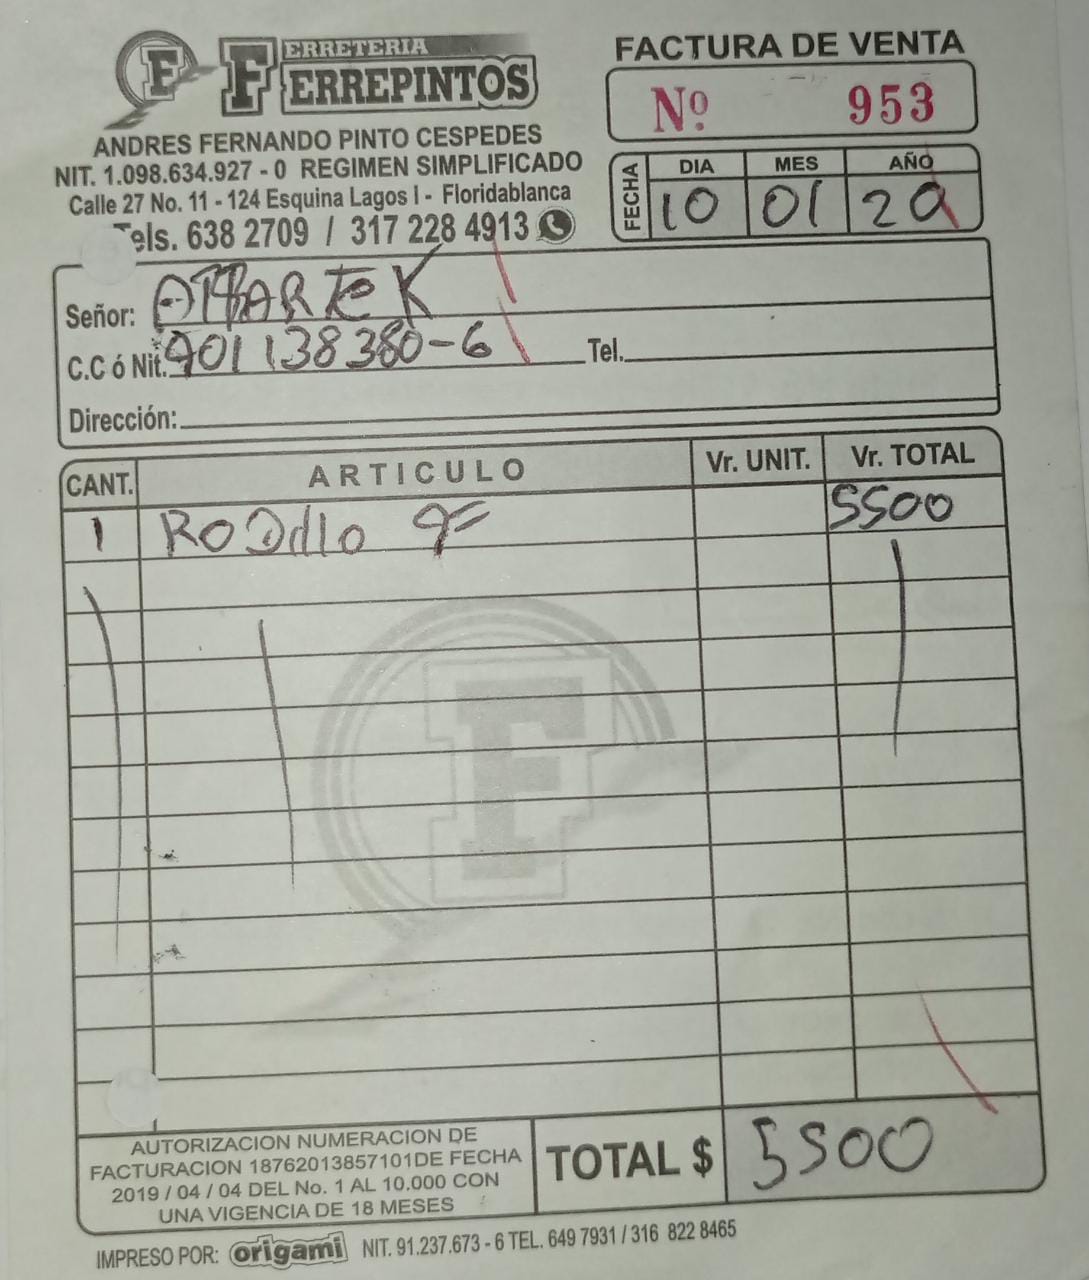 FERRETERIA
FERREPINTOS
ANDRES FERNANDO PINTO CESPEDES
NIT. 1.098.634.927 - 0 REGIMEN SIMPLIFICADO
Calle 27 No. 11 - 124 Esquina Lagos I - Floridablanca
Tels. 638 2709 / 317 228 4913
FACTURA DE VENTA
Nº 953
FECHA
DIA MES AÑO
10 01 20
Señor:
C.C ó Nit. 901138380-6 Tel.
Dirección:
CANT. ARTICULO Vr. UNIT. Vr. TOTAL
1 Rodillo 5500
AUTORIZACION NUMERACION DE
FACTURACION 18762013857101DE FECHA
2019 / 04 / 04 DEL No. 1 AL 10.000 CON
UNA VIGENCIA DE 18 MESES
TOTAL $ 5500
IMPRESO POR: origami NIT. 91.237.673 - 6 TEL. 649 7931 / 316 822 8465